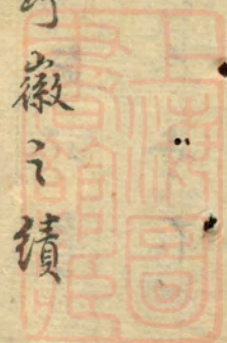 徽之績
上海圖
書館藏